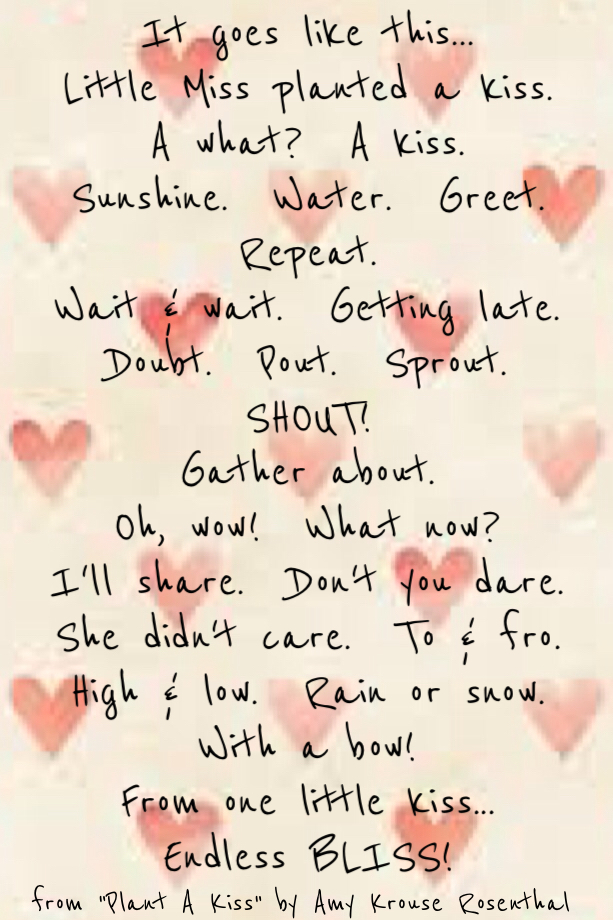 It goes like this...
Little Miss planted a kiss.
A what? A kiss.
Sunshine. Water. Greet.
Repeat.
Wait & wait. Getting late.
Doubt. Pout. Sprout.
SHOUT!
Gather about.
Oh, wow! What now?
I'll share. Don't you dare.
She didn't care. To & fro.
High & low. Rain or snow.
With a bow!
From one little kiss...
Endless BLISS!
from "Plant A Kiss" by Amy Krouse Rosenthal